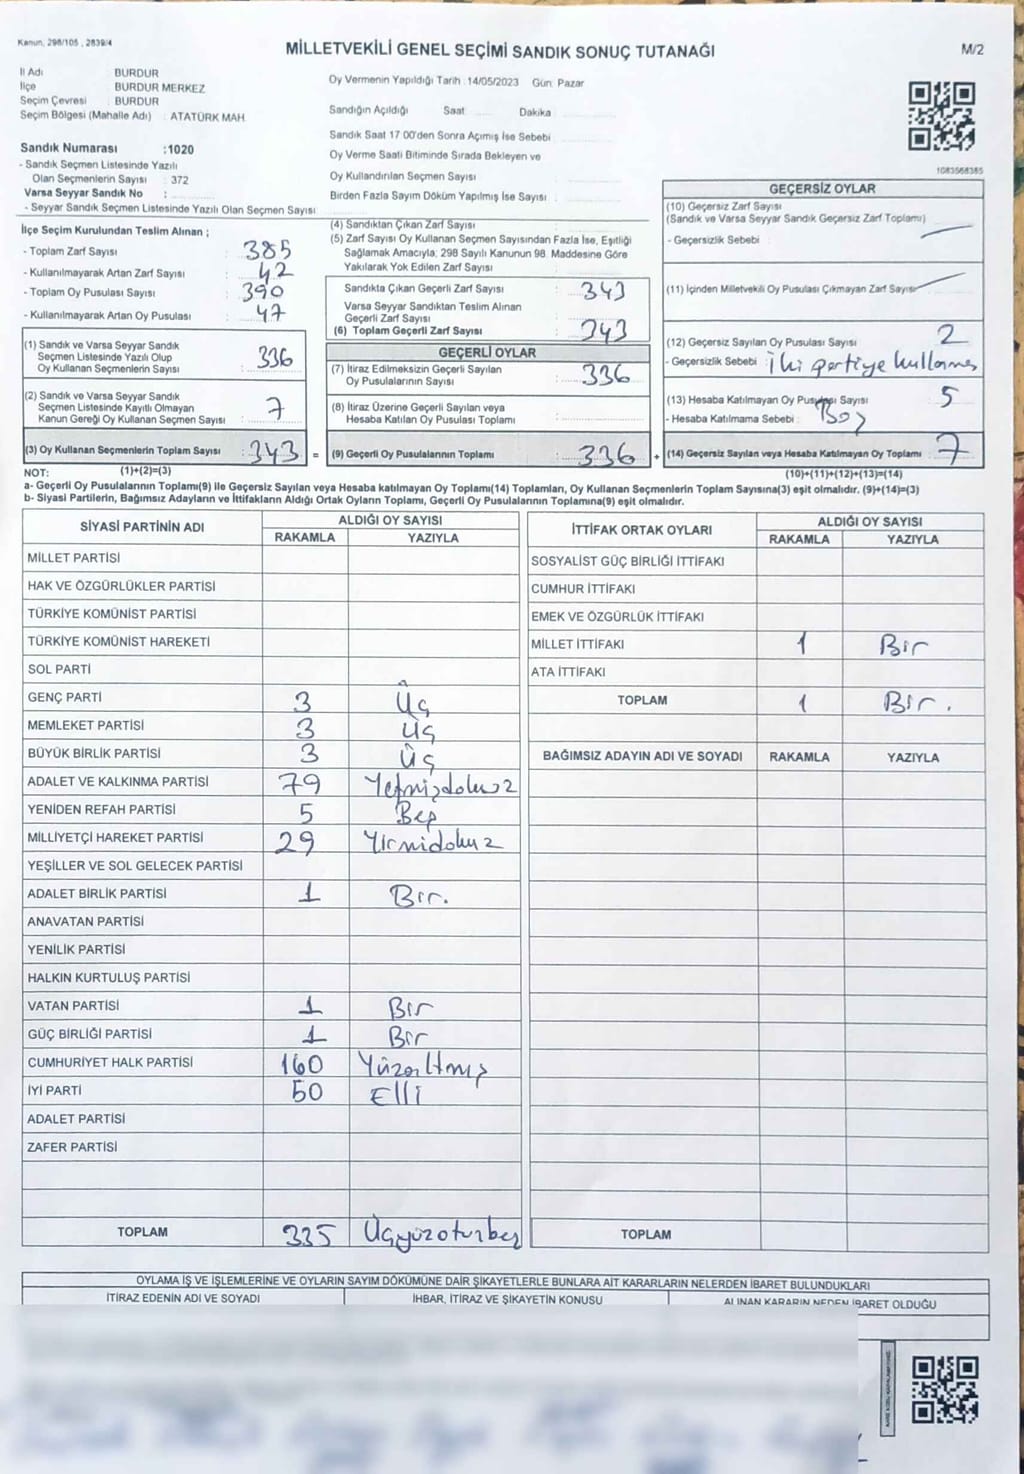 Kanun, 298/105 , 2839/4
MİLLETVEKİLİ GENEL SEÇİMİ SANDIK SONUÇ TUTANAĞI
M/2
İl Adı BURDUR
İlçe BURDUR MERKEZ
Seçim Çevresi : BURDUR
Seçim Bölgesi (Mahalle Adı) : ATATÜRK MAH.
Sandık Numarası :1020
- Sandık Seçmen Listesinde Yazılı
Olan Seçmenlerin Sayısı : 372
Varsa Seyyar Sandık No :
- Seyyar Sandık Seçmen Listesinde Yazılı Olan Seçmen Sayısı
Oy Vermenin Yapıldığı Tarih :14/05/2023 Gün: Pazar
Sandığın Açıldığı Saat Dakika
Sandık Saat 17 00'den Sonra Açımış İse Sebebi
Oy Verme Saati Bitiminde Sırada Bekleyen ve
Oy Kullandırılan Seçmen Sayısı
Birden Fazla Sayım Döküm Yapılmış İse Sayısı
1083568385
İlçe Seçim Kurulundan Teslim Alınan ;
- Toplam Zarf Sayısı : 385
- Kullanılmayarak Artan Zarf Sayısı : 42
- Toplam Oy Pusulası Sayısı : 390
- Kullanılmayarak Artan Oy Pusulası : 47
(1) Sandık ve Varsa Seyyar Sandık
Seçmen Listesinde Yazılı Olup
Oy Kullanan Seçmenlerin Sayısı : 336
(2) Sandık ve Varsa Seyyar Sandık
Seçmen Listesinde Kayıtlı Olmayan
Kanun Gereği Oy Kullanan Seçmen Sayısı : 7
(3) Oy Kullanan Seçmenlerin Toplam Sayısı : 343 =
(4) Sandıktan Çıkan Zarf Sayısı
(5) Zarf Sayısı Oy Kullanan Seçmen Sayısından Fazla İse, Eşitliği
Sağlamak Amacıyla; 298 Sayılı Kanunun 98. Maddesine Göre
Yakılarak Yok Edilen Zarf Sayısı
Sandıkta Çıkan Geçerli Zarf Sayısı : 343
Varsa Seyyar Sandıktan Teslim Alınan
Geçerli Zarf Sayısı
(6) Toplam Geçerli Zarf Sayısı : 343
GEÇERLİ OYLAR
(7) İtiraz Edilmeksizin Geçerli Sayılan
Oy Pusulalarının Sayısı : 336
(8) İtiraz Üzerine Geçerli Sayılan veya
Hesaba Katılan Oy Pusulası Toplamı
(9) Geçerli Oy Pusulalarının Toplamı : 336 +
GEÇERSİZ OYLAR
(10) Geçersiz Zarf Sayısı
(Sandık ve Varsa Seyyar Sandık Geçersiz Zarf Toplamı)
- Geçersizlik Sebebi :
(11) İçinden Milletvekili Oy Pusulası Çıkmayan Zarf Sayısı
(12) Geçersiz Sayılan Oy Pusulası Sayısı : 2
- Geçersizlik Sebebi : İki partiye kullanmış
(13) Hesaba Katılmayan Oy Pusulası Sayısı : 5
- Hesaba Katılmama Sebebi : Boş
(14) Geçersiz Sayılan veya Hesaba Katılmayan Oy Toplamı : 7
NOT: (1)+(2)=(3) (10)+(11)+(12)+(13)=(14)
a- Geçerli Oy Pusulalarının Toplamı(9) ile Geçersiz Sayılan veya Hesaba katılmayan Oy Toplamı(14) Toplamları, Oy Kullanan Seçmenlerin Toplam Sayısına(3) eşit olmalıdır. (9)+(14)=(3)
b- Siyasi Partilerin, Bağımsız Adayların ve İttifakların Aldığı Ortak Oyların Toplamı, Geçerli Oy Pusulalarının Toplamına(9) eşit olmalıdır.
SİYASİ PARTİNİN ADI ALDIĞI OY SAYISI
RAKAMLA YAZIYLA
MİLLET PARTİSİ
HAK VE ÖZGÜRLÜKLER PARTİSİ
TÜRKİYE KOMÜNİST PARTİSİ
TÜRKİYE KOMÜNİST HAREKETİ
SOL PARTİ
GENÇ PARTİ 3 Üç
MEMLEKET PARTİSİ 3 Üç
BÜYÜK BİRLİK PARTİSİ 3 Üç
ADALET VE KALKINMA PARTİSİ 79 Yetmişdokuz
YENİDEN REFAH PARTİSİ 5 Beş
MİLLİYETÇİ HAREKET PARTİSİ 29 Yirmidokuz
YEŞİLLER VE SOL GELECEK PARTİSİ
ADALET BİRLİK PARTİSİ 1 Bir.
ANAVATAN PARTİSİ
YENİLİK PARTİSİ
HALKIN KURTULUŞ PARTİSİ
VATAN PARTİSİ 1 Bir
GÜÇ BİRLİĞİ PARTİSİ 1 Bir
CUMHURİYET HALK PARTİSİ 160 Yüzaltmış
İYİ PARTİ 50 Elli
ADALET PARTİSİ
ZAFER PARTİSİ
TOPLAM 335 Üçyüzotuzbeş
İTTİFAK ORTAK OYLARI ALDIĞI OY SAYISI
RAKAMLA YAZIYLA
SOSYALİST GÜÇ BİRLİĞİ İTTİFAKI
CUMHUR İTTİFAKI
EMEK VE ÖZGÜRLÜK İTTİFAKI
MİLLET İTTİFAKI 1 Bir
ATA İTTİFAKI
TOPLAM 1 Bir.
BAĞIMSIZ ADAYIN ADI VE SOYADI RAKAMLA YAZIYLA
TOPLAM
OYLAMA İŞ VE İŞLEMLERİNE VE OYLARIN SAYIM DÖKÜMÜNE DAİR ŞİKAYETLERLE BUNLARA AİT KARARLARIN NELERDEN İBARET BULUNDUKLARI
İTİRAZ EDENİN ADI VE SOYADI İHBAR, İTİRAZ VE ŞİKAYETİN KONUSU ALINAN KARARIN NEDEN İBARET OLDUĞU